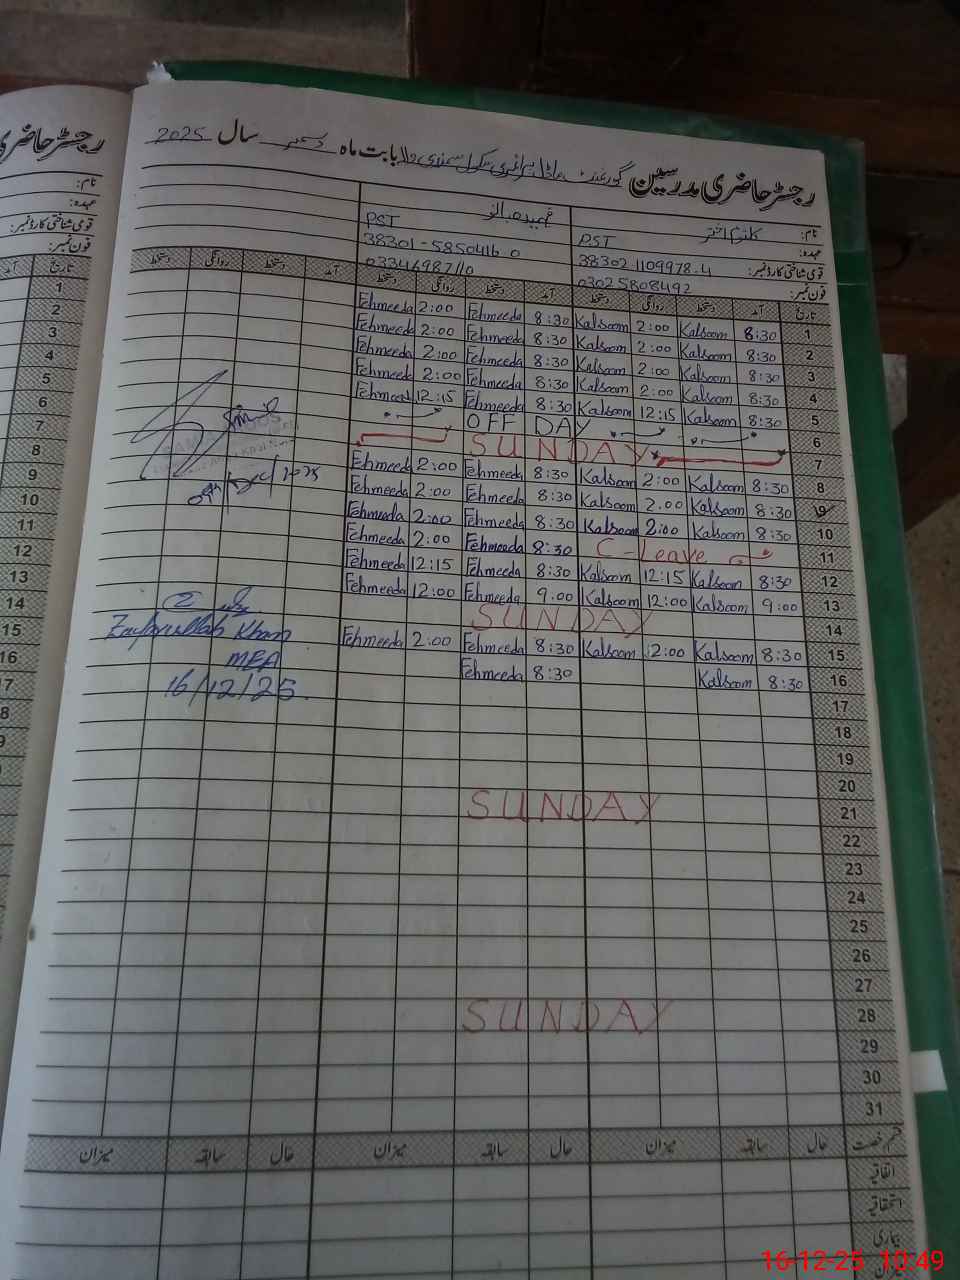 رجسٹر حاضری مدرسین گورنمنٹ بابت ماہ دسمبر سال 2025
رجسٹر حاضری
نام: کلثوم اختر فہمیدہ بانو
عہدہ: PST PST
قومی شناختی کارڈ نمبر: 38302 1109978-4 38301-5850416-0
فون نمبر: 03025808492 03346987110
تاریخ آمد دستخط روانگی دستخط آمد دستخط روانگی دستخط آمد دستخط روانگی دستخط
1 8:30 Kalsoom 2:00 Kalsoom 8:30 Fehmeeda 2:00 Fehmeeda
2 8:30 Kalsoom 2:00 Kalsoom 8:30 Fehmeeda 2:00 Fehmeeda
3 8:30 Kalsoom 2:00 Kalsoom 8:30 Fehmeeda 2:00 Fehmeeda
4 8:30 Kalsoom 2:00 Kalsoom 8:30 Fehmeeda 2:00 Fehmeeda
5 8:30 Kalsoom 12:15 Kalsoom 8:30 Fehmeeda 12:15 Fehmeeda
6 OFF DAY
7 SUNDAY
8 8:30 Kalsoom 2:00 Kalsoom 8:30 Fehmeeda 2:00 Fehmeeda
9 8:30 Kalsoom 2:00 Kalsoom 8:30 Fehmeeda 2:00 Fehmeeda
10 8:30 Kalsoom 2:00 Kalsoom 8:30 Fehmeeda 2:00 Fehmeeda
11 C-Leave 8:30 Fehmeeda 2:00 Fehmeeda
12 8:30 Kalsoom 12:15 Kalsoom 8:30 Fehmeeda 12:15 Fehmeeda
13 9:00 Kalsoom 12:00 Kalsoom 9:00 Fehmeeda 12:00 Fehmeeda
14 SUNDAY
15 8:30 Kalsoom 2:00 Kalsoom 8:30 Fehmeeda 2:00 Fehmeeda
16 8:30 Kalsoom 8:30 Fehmeeda
Zafarullah Khan
MEA
16/12/25
17
18
19
20
21 SUNDAY
22
23
24
25
26
27
28 SUNDAY
29
30
31
قسم رخصت حال سابقہ میزان حال سابقہ میزان حال سابقہ میزان
اتفاقیہ
استحقاقیہ
بیماری
16-12-25 10:49